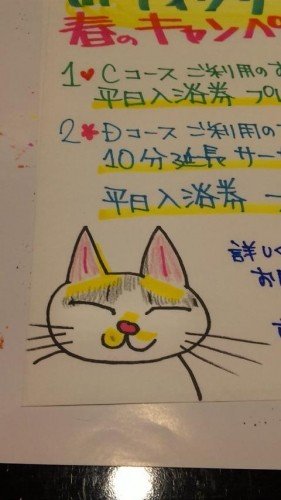 春のキャンペ
1♥Cコース ご利用のお
平日入浴券 プレ
2*Dコース ご利用の
10分延長 サー
平日入浴券
詳しく
お